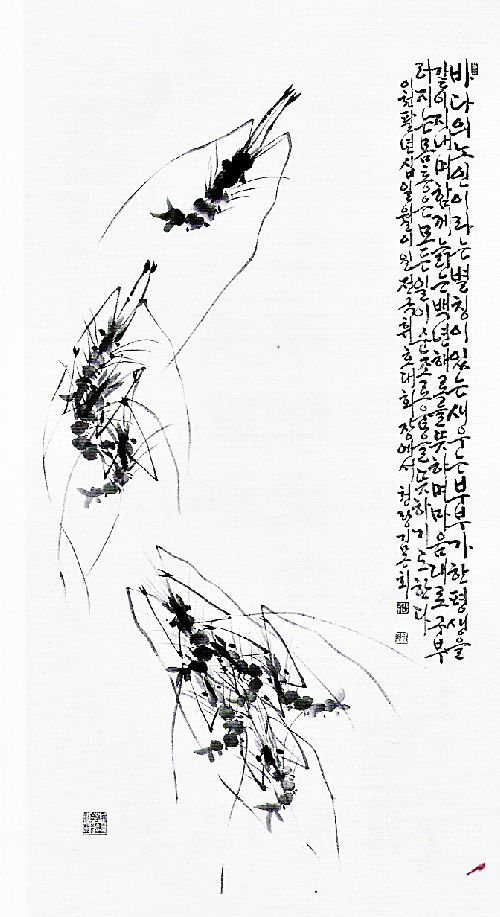 바다의 노인이라는 별칭이 있는 새우는 부부가 한평생을
같이 지내며 함께 늙는 백년해로를 뜻하며 마음대로 구부
러지는 몸통은 모든 일이 순조로움을 뜻하기도 한다
이천팔년 십일월 이일 전국휘호대회장에서